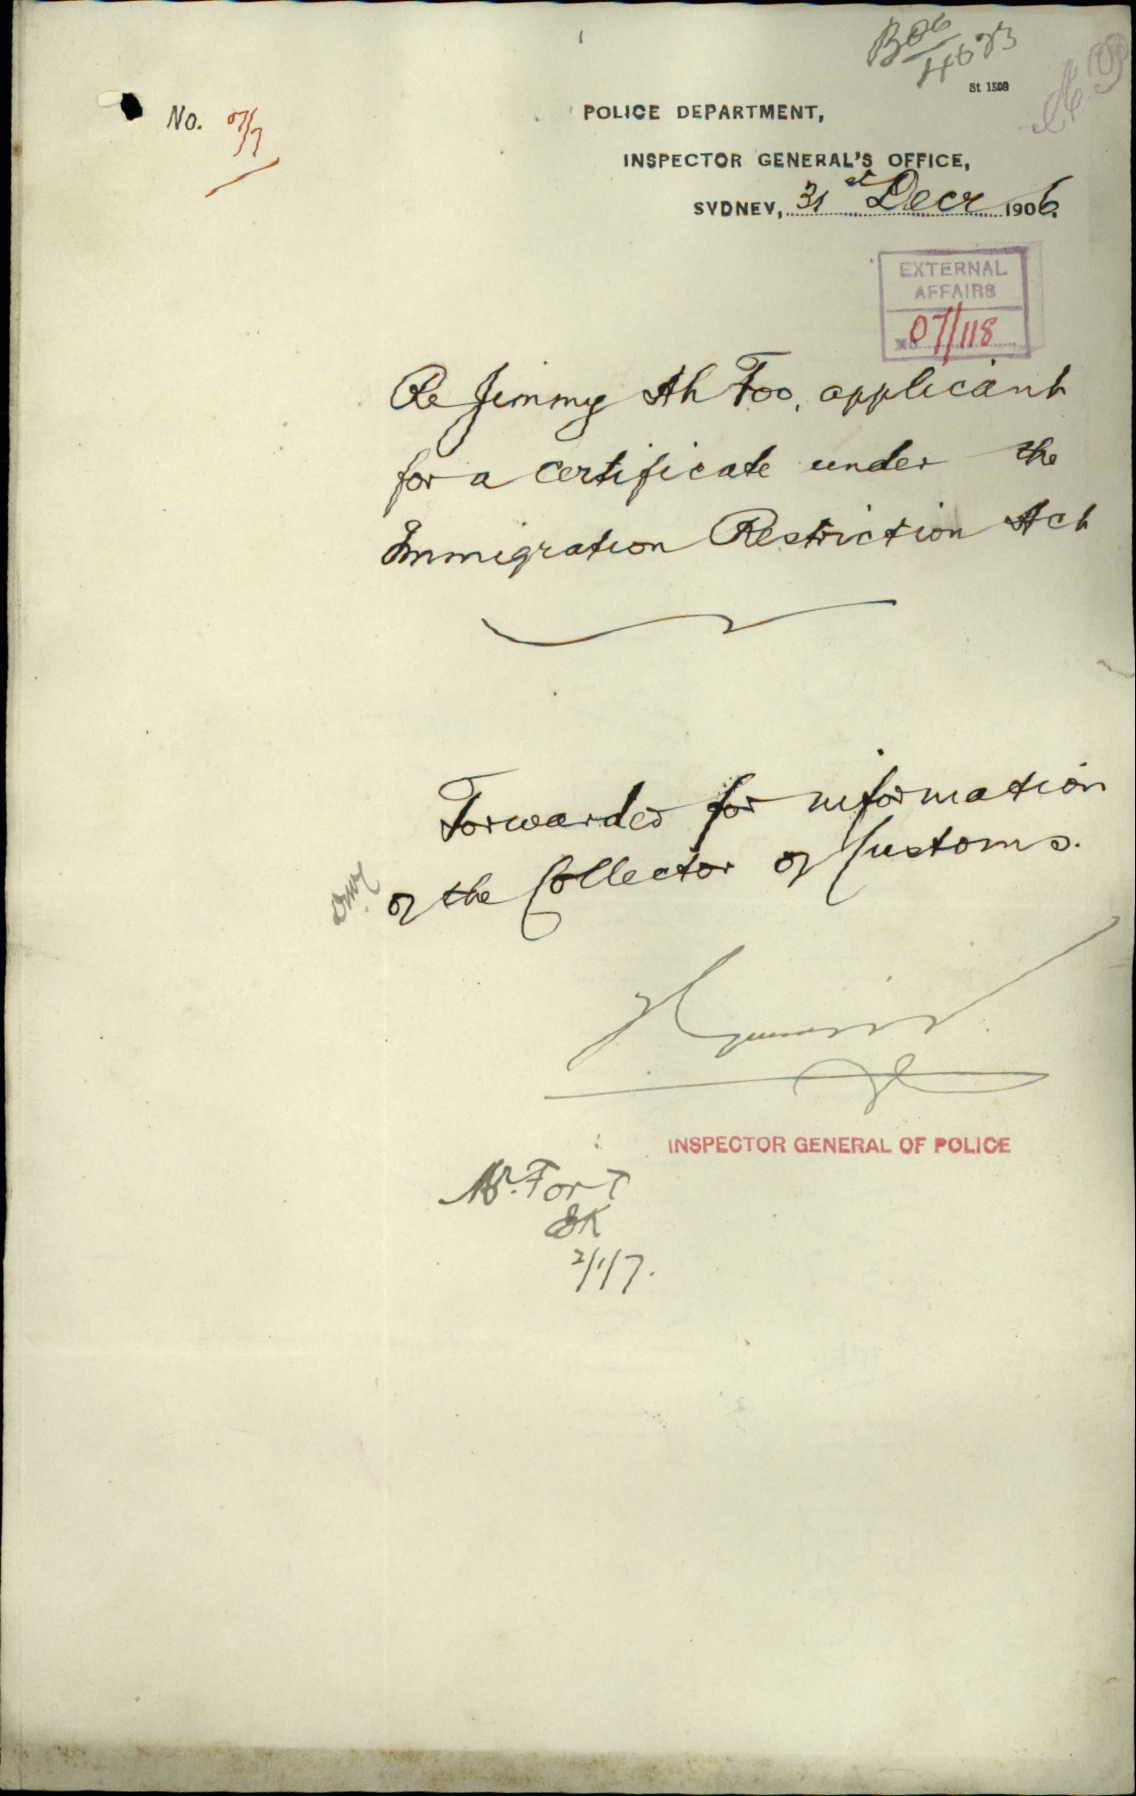 B06
4673
St 1508
No. 07/7
POLICE DEPARTMENT,
INSPECTOR GENERAL'S OFFICE,
SYDNEY, 31st Decr 1906.
EXTERNAL
AFFAIRS
No 07/118
Re Jimmy Ah Foo, applicant
for a certificate under the
Immigration Restriction Act
Forwarded for information
of the Collector of Customs.
INSPECTOR GENERAL OF POLICE
Mr. Fort
2/1/7.